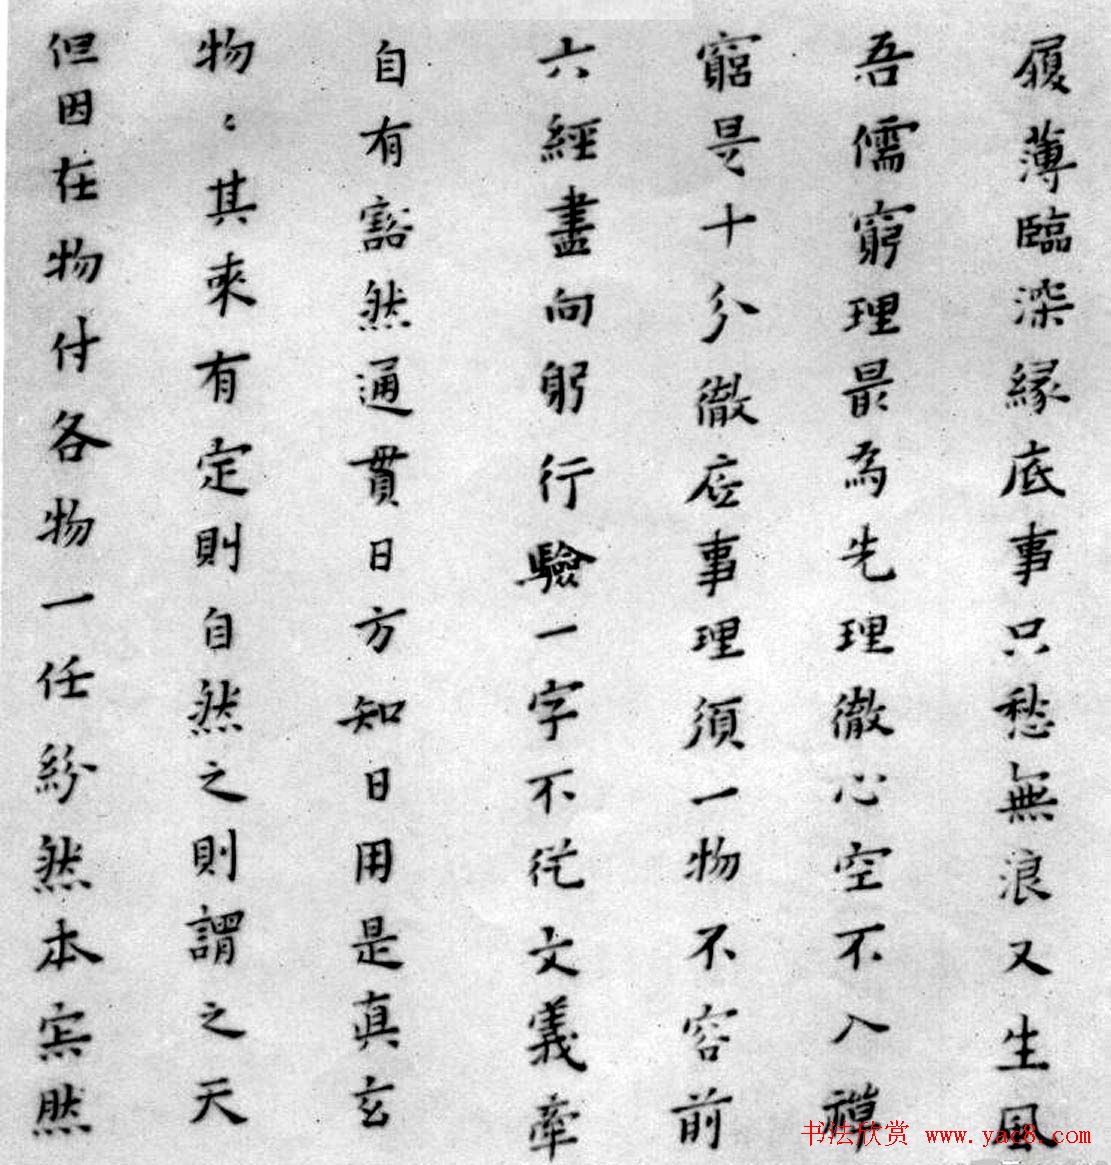 履薄臨深緣底事只愁無浪又生風
吾儒窮理最為先理徹心空不入禪
窮是十分徹應事理須一物不容前
六經盡向躬行驗一字不從文義牽
自有豁然通貫日方知日用是真玄
物〻其來有定則自然之則謂之天
但因在物付各物一任紛然本寂然
书法欣赏 www.yac8.com